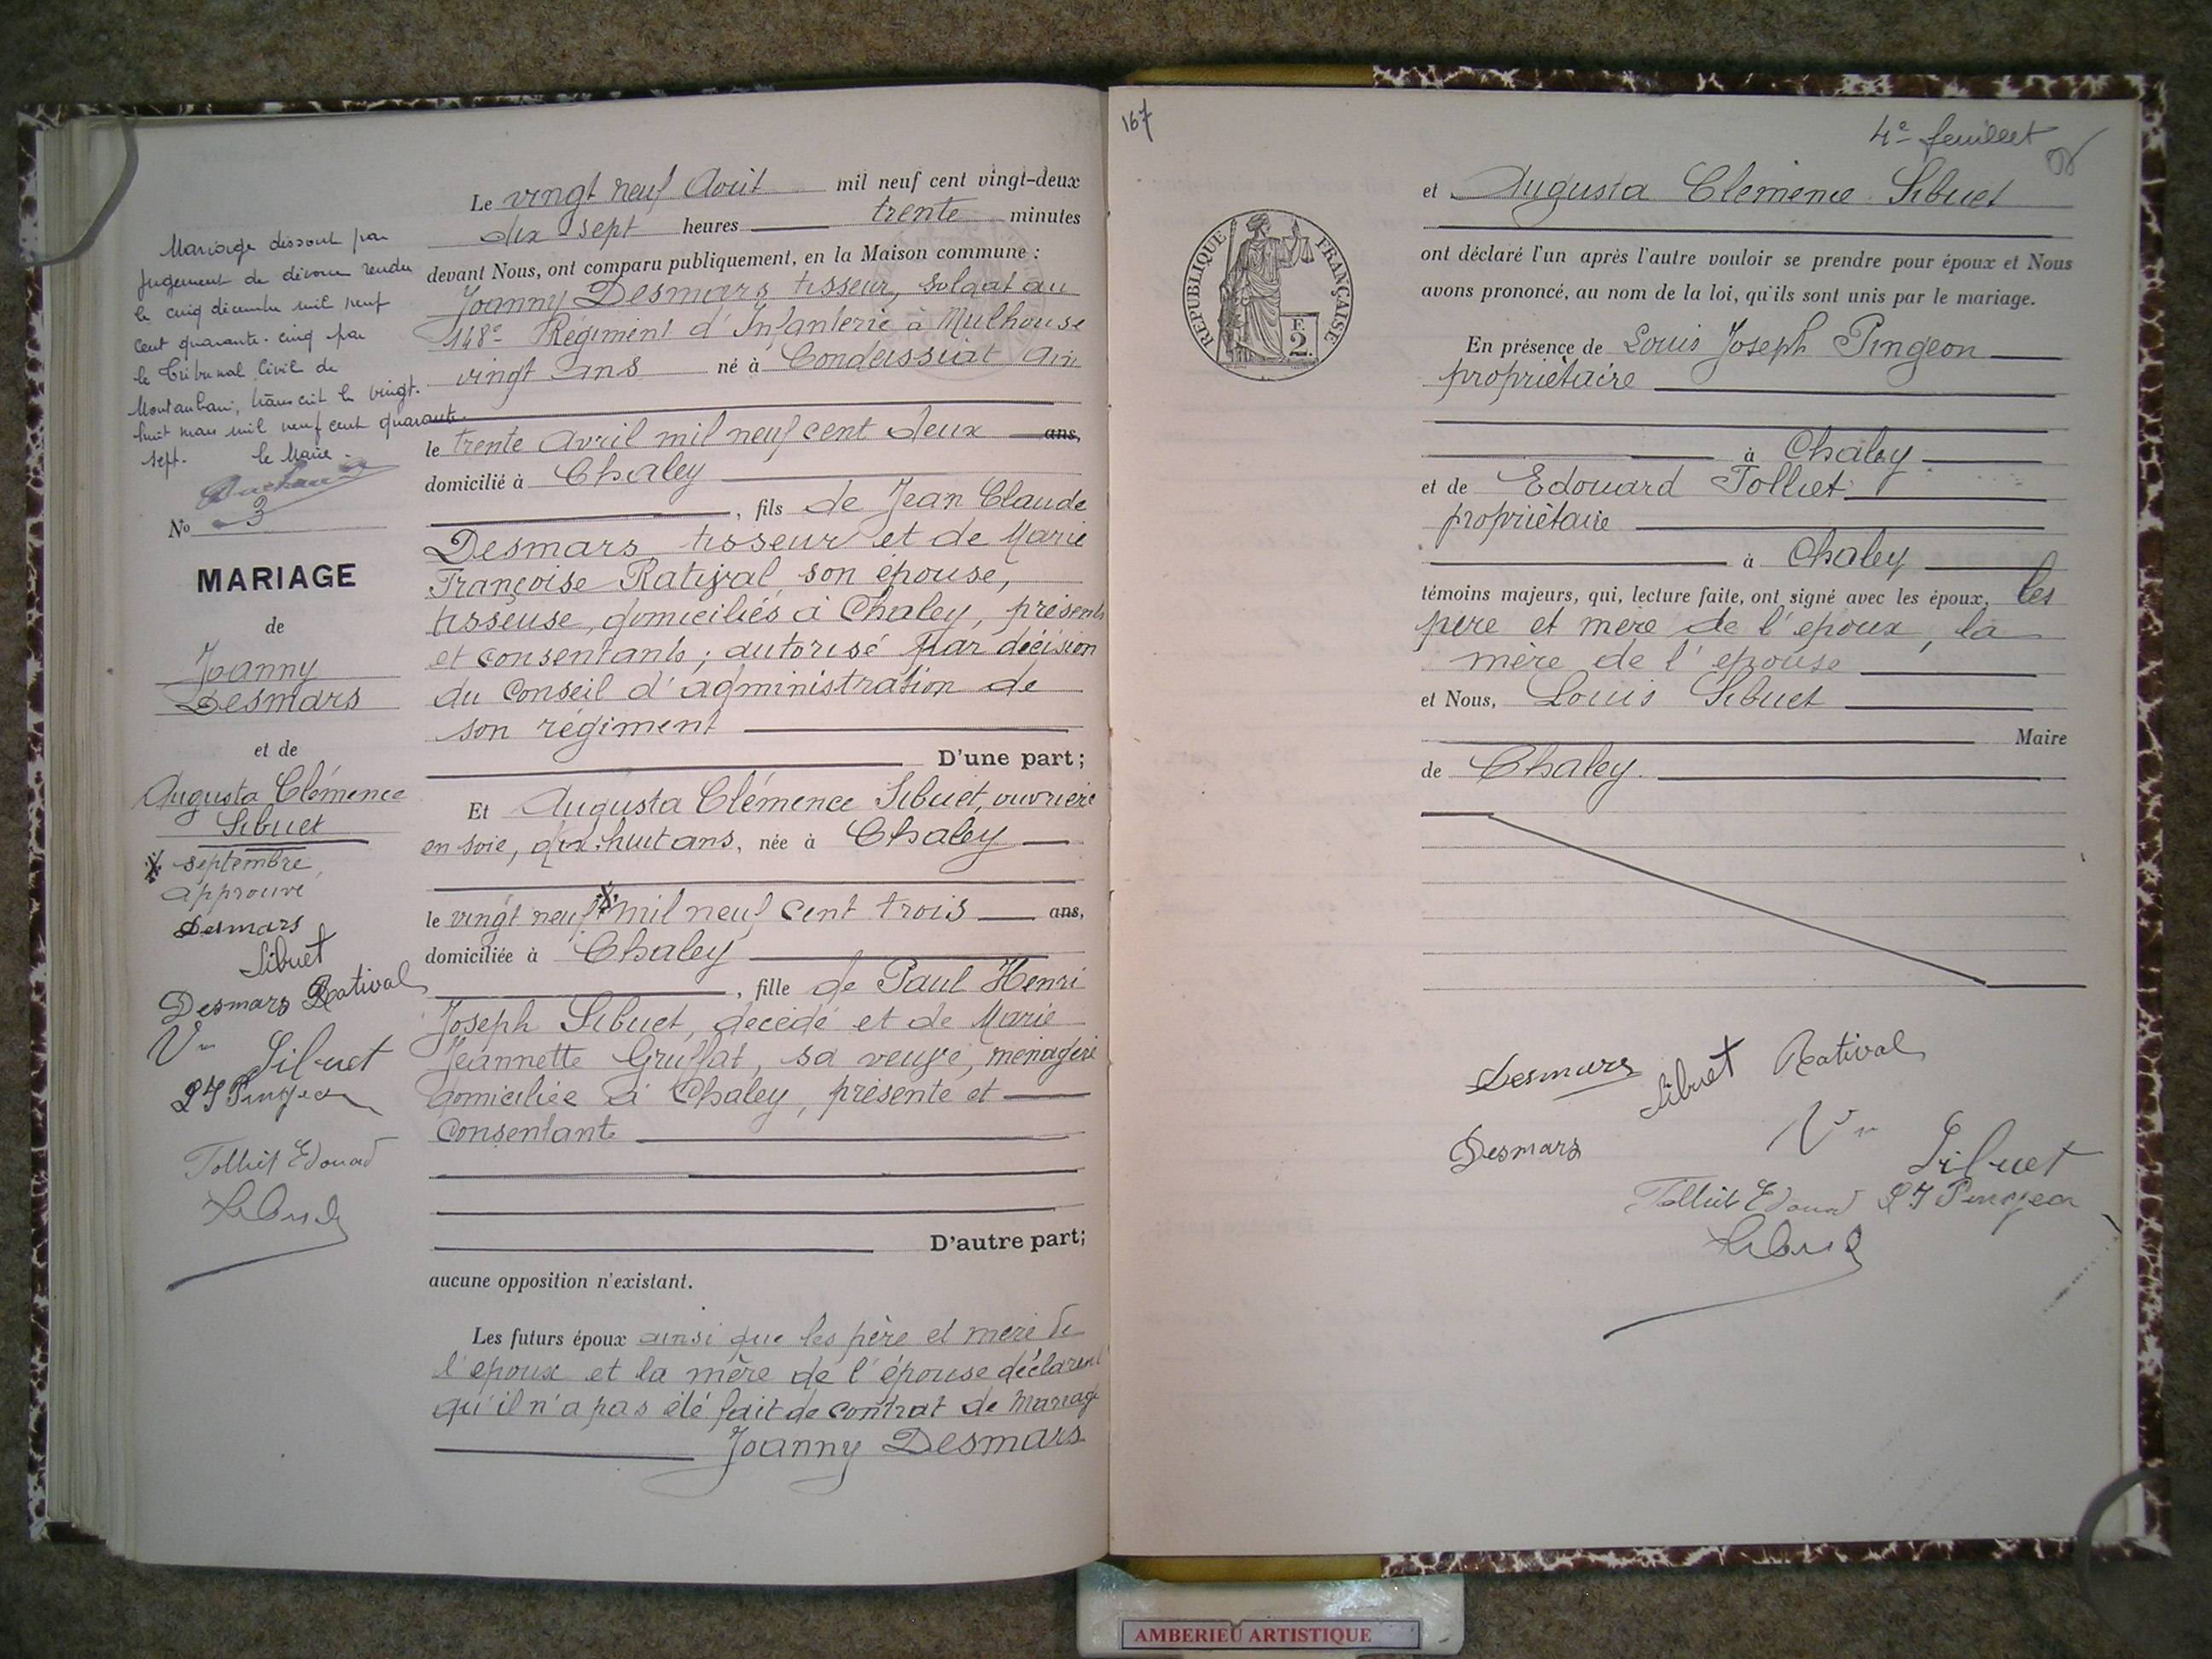 Mariage dissout par
jugement de divorce rendu
le cinq décembre mil neuf
cent quarante-cinq par
le Tribunal Civil de
Montauban, transcrit le vingt-
huit mars mil neuf cent quarante-
sept. le Maire
No 3
MARIAGE
de
Joanny
Desmars
et de
Augusta Clémence
Sibuet
X septembre,
approuvé
Desmars
Sibuet
Desmars Ratival
Vve Sibuet
LJ Pingeon
Tolliet Edouard
Sibuet
Le vingt neuf Août mil neuf cent vingt-deux
dix sept heures trente minutes
devant Nous, ont comparu publiquement, en la Maison commune :
Joanny Desmars, tisseur, soldat au
148e Régiment d'Infanterie à Mulhouse
vingt ans né à Condeissiat Ain
le trente Avril mil neuf cent deux ans,
domicilié à Chaley
, fils de Jean Claude
Desmars tisseur et de Marie
Françoise Ratival, son épouse,
tisseuse, domiciliés à Chaley, présents
et consentants ; autorisé par décision
du Conseil d'administration de
son régiment
D'une part ;
Et Augusta Clémence Sibuet, ouvrière
en soie, dix-huit ans, née à Chaley
le vingt neuf X mil neuf cent trois ans,
domiciliée à Chaley
, fille de Paul Henri
Joseph Sibuet, décédé et de Marie
Jeannette Gruffat, sa veuve, ménagère
domiciliée à Chaley, présente et
consentante
D'autre part;
aucune opposition n'existant.
Les futurs époux ainsi que les père et mère de
l'époux et la mère de l'épouse déclarent
qu'il n'a pas été fait de contrat de mariage
Joanny Desmars
167
4e feuillet
RÉPUBLIQUE FRANÇAISE
F.
2.
et Augusta Clémence Sibuet
ont déclaré l'un après l'autre vouloir se prendre pour époux et Nous
avons prononcé, au nom de la loi, qu'ils sont unis par le mariage.
En présence de Louis Joseph Pingeon
propriètaire
à Chaley
et de Edouard Tolliet
propriètaire
à Chaley
témoins majeurs, qui, lecture faite, ont signé avec les époux, les
père et mère de l'époux, la
mère de l'épouse
et Nous, Louis Sibuet
Maire
de Chaley.
Desmars Sibuet Ratival
Desmars Vve Sibuet
Tolliet Edouard LJ Pingeon
Sibuet
AMBERIEU ARTISTIQUE